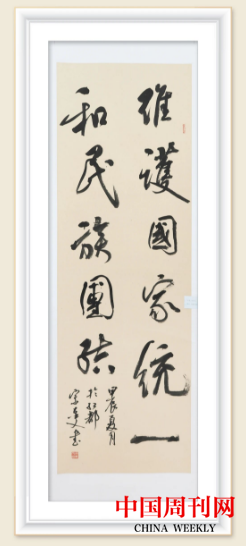 维護國家统一
和民族團结
甲辰夏月
於江都
中国周刊网
CHINA WEEKLY